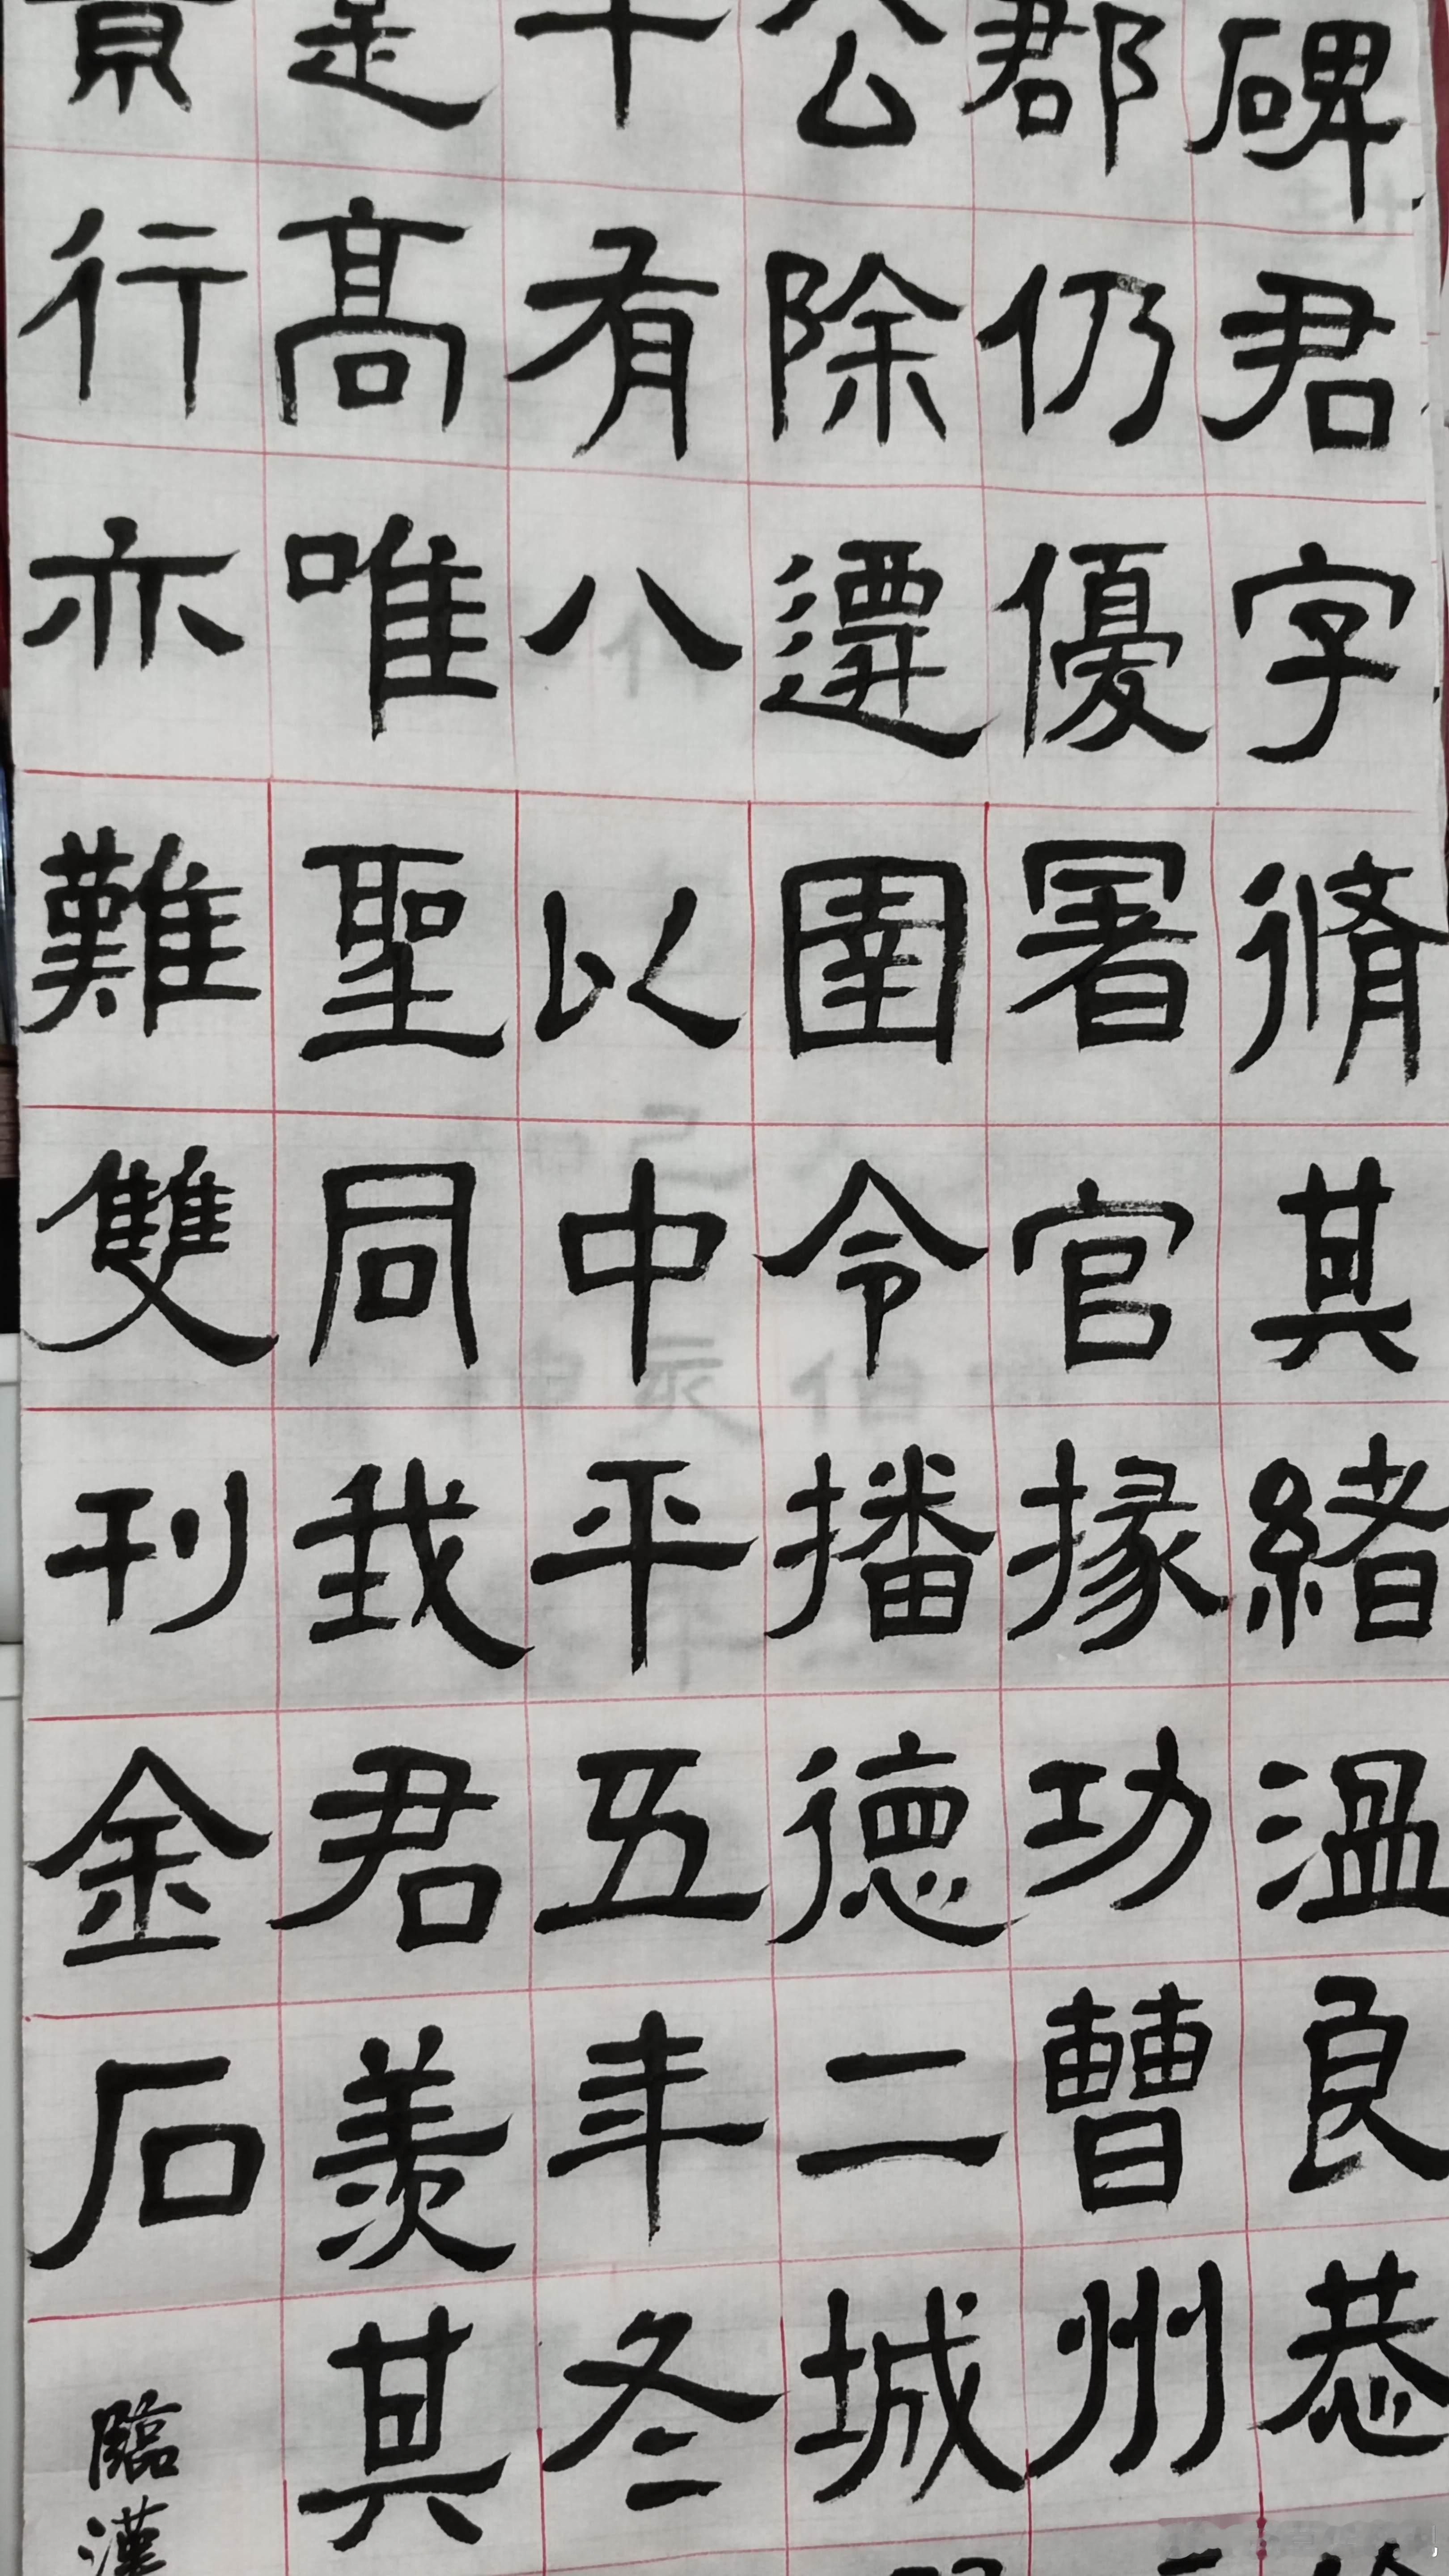 碑君字脩其緒溫良恭
郡仍優署官掾功曹州
公除遷圉令播德二城
十有八以中平五年冬
是高唯聖同我君羡其
景行亦難雙刊金石
臨漢